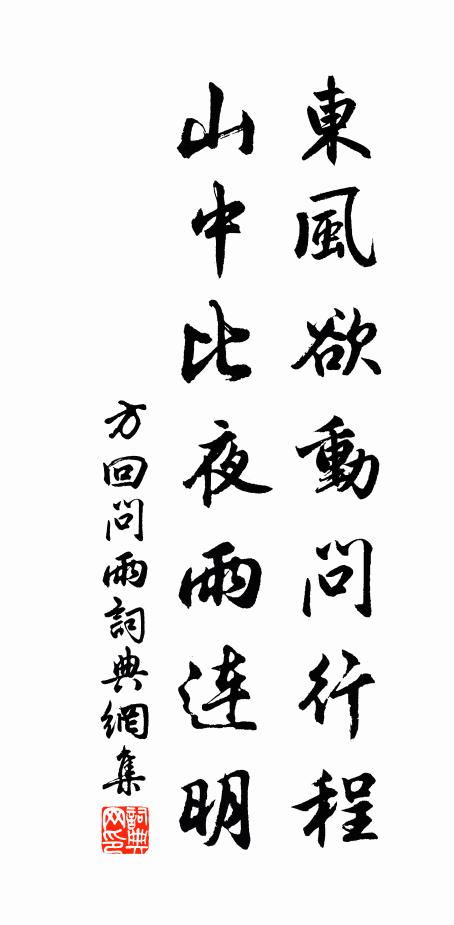 東風欲動問行程
山中比夜雨连明
方回問雨詞典網集
詞典
网印